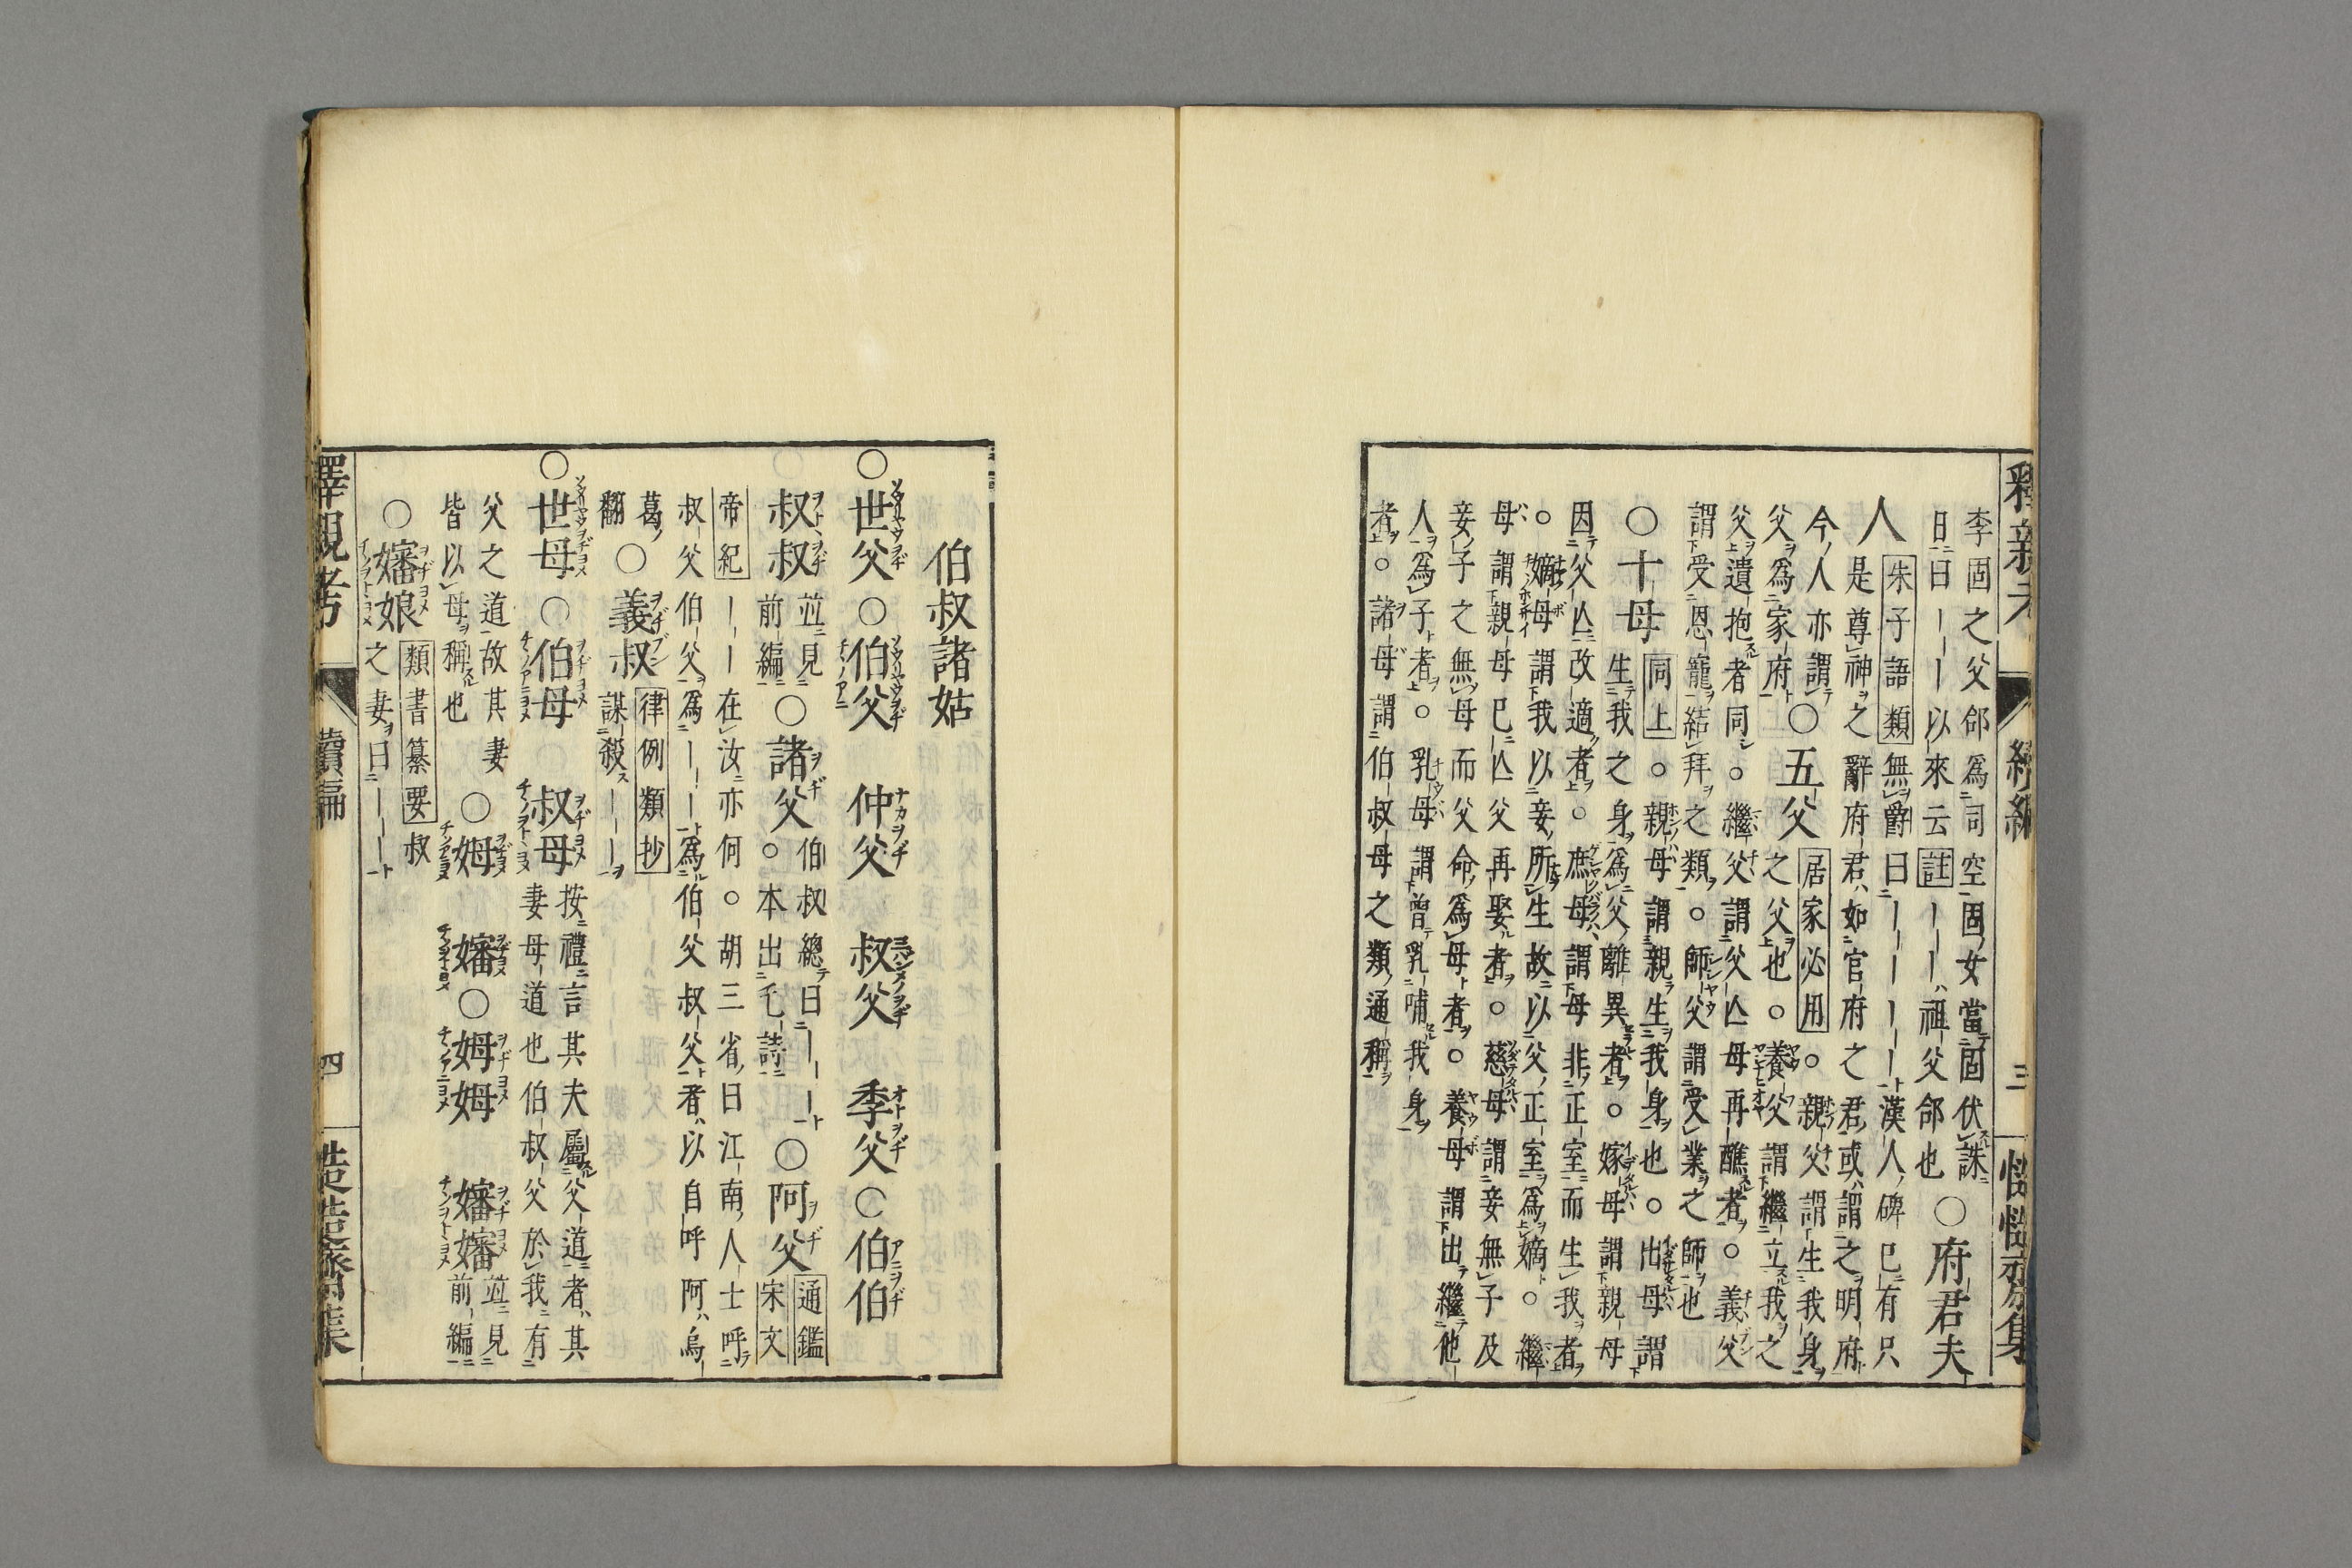 李固之父郃爲司空固女當固伏誅
日曰｜｜｜以來云註｜｜｜祖父郃也○府君夫
人朱子語類無爵曰｜｜｜｜漢人碑已有只
是尊神之辭府君如官府之君或謂之明府
今人亦謂○五父居家必用○親父謂生我身
父爲家府之父也○養父謂繼立我之
父遺抱者同○繼父謂父亾母再醮者○義父
謂受恩寵結拜之類○師父謂受業之師也
○十母同上○親母謂親生我身也○出母謂
生我之身爲父離異者○嫁母謂親母
因父亾改適者○庶母謂母非正室而生我者
○嫡母謂我以妾所生故以父正室爲嫡○繼
母謂親母已亾父再娶者○慈母謂妾無子及
妾子之無母而父命爲母者○養母謂出繼他
人爲子者○乳母謂曾乳哺我身
者○諸母謂伯叔母之類通稱
釋親考
續編
三
伯叔諸姑
○世父○伯父 仲父 叔父 季父○伯伯
叔叔並見前編○諸父伯叔總曰｜｜｜○本出毛詩○阿父通鑑宋文
帝紀｜｜在汝亦何○胡三省曰江南人士呼
叔父伯父爲｜｜爲伯父叔父者以自呼阿烏
葛翻○義叔律例類抄謀殺｜｜｜
○世母○伯母 叔母按禮言其夫屬父道者其妻母道也伯叔父於我有
父之道故其妻皆以母稱也○姆 嬸○姆姆 嬸嬸並見前編
○嬸娘類書纂要叔之妻曰｜｜｜
釋親考
續編
四